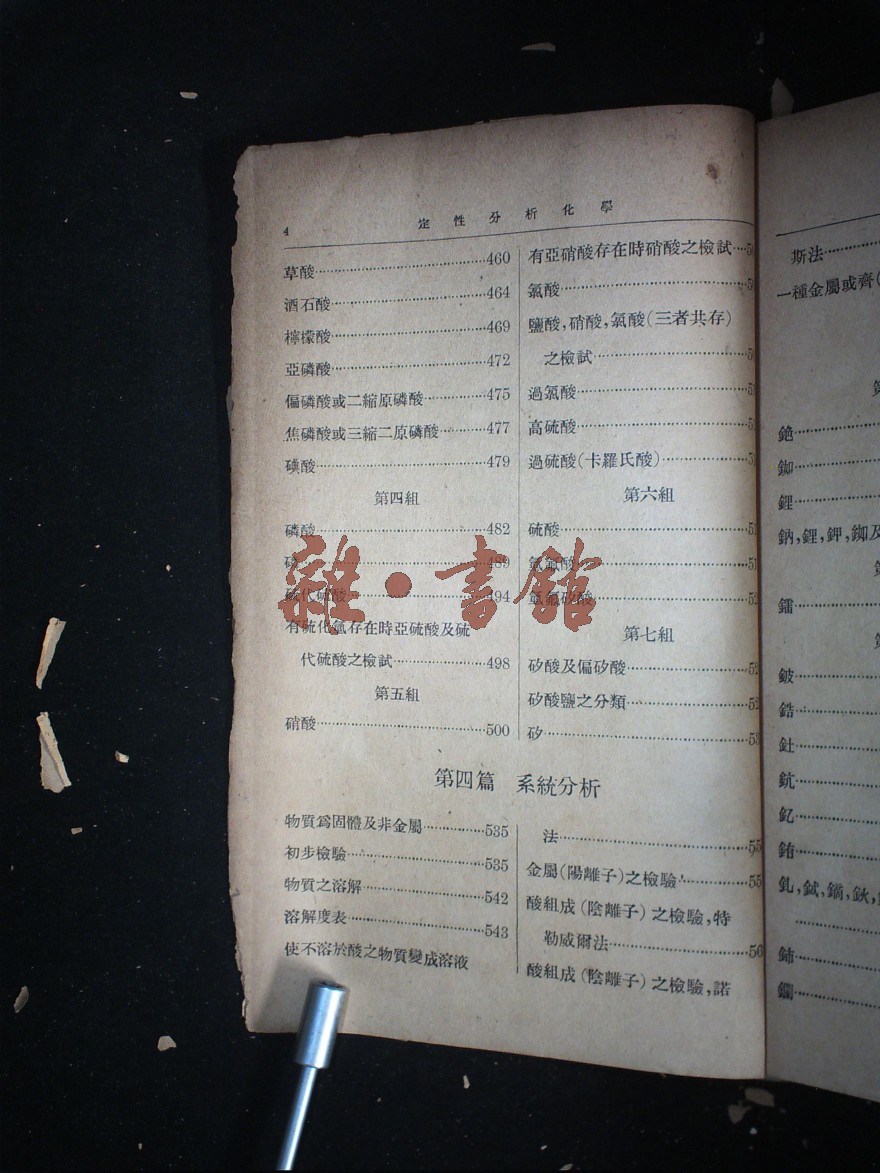 4
定性分析化學
草酸 460
酒石酸 464
檸檬酸 469
亞磷酸 472
偏磷酸或二縮原磷酸 475
焦磷酸或三縮二原磷酸 477
碘酸 479
第四組
磷酸 482
489
硫代硫酸 494
有硫化氫存在時亞硫酸及硫
代硫酸之檢試 498
第五組
硝酸 500
有亞硝酸存在時硝酸之檢試
氯酸
鹽酸,硝酸,氯酸(三者共存)
之檢試
過氯酸
高硫酸
過硫酸(卡羅氏酸)
第六組
硫酸
氫氟酸
氫氟矽酸
第七組
矽酸及偏矽酸
矽酸鹽之分類
矽
第四篇 系統分析
物質爲固體及非金屬 535
初步檢驗 535
物質之溶解 542
溶解度表 543
使不溶於酸之物質變成溶液
法
金屬(陽離子)之檢驗
酸組成(陰離子)之檢驗,特
勒威爾法
酸組成(陰離子)之檢驗,諾
斯法
一種金屬或齊
銫
銣
鋰
鈉,鋰,鉀,銣及
鐳
鈹
鋯
釷
鈧
釔
銪
釓,鋱,鏑,鈥,
鈽
鑭
雜·書館